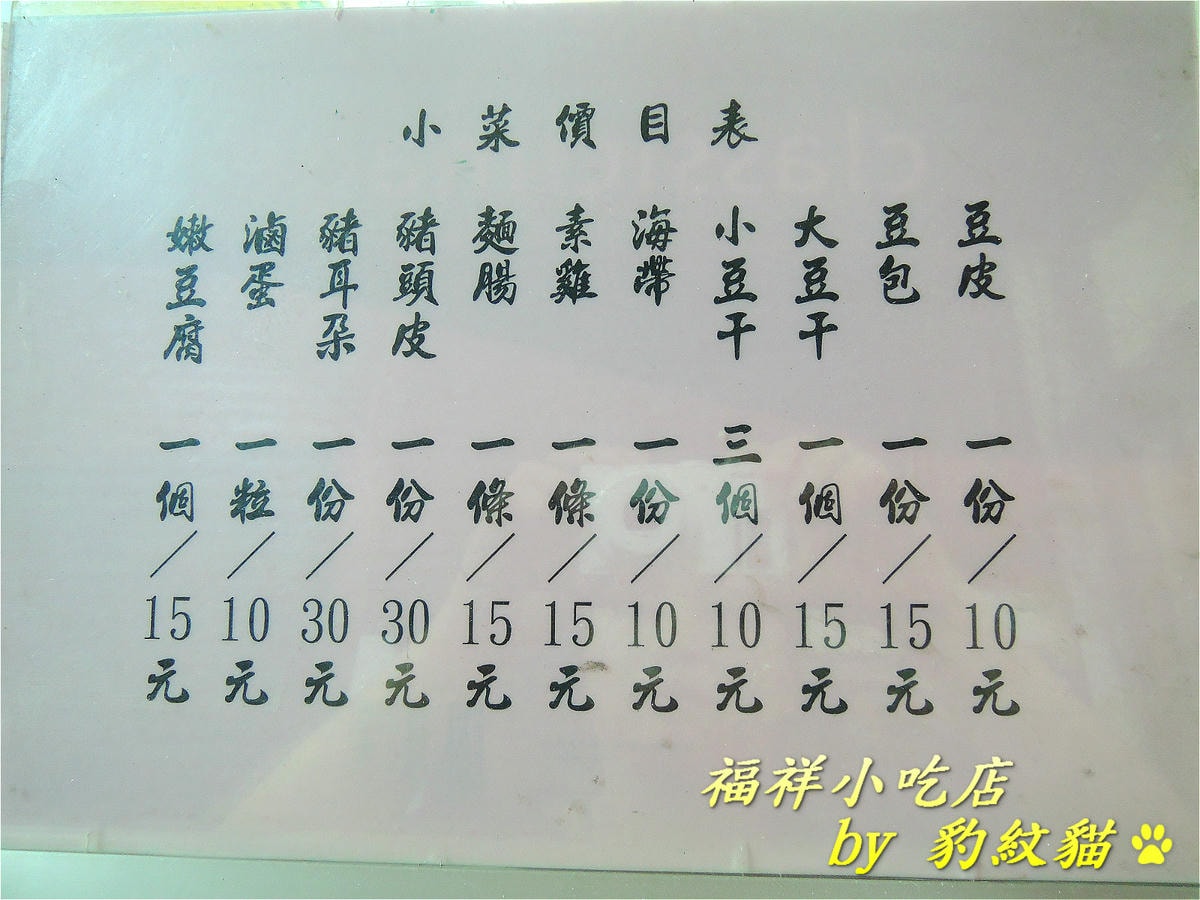 小菜價目表
豆皮 一份／10元
豆包 一份／15元
大豆干 一個／15元
小豆干 三個／10元
海帶 一份／10元
素雞 一條／15元
麵腸 一條／15元
豬頭皮 一份／30元
豬耳朵 一份／30元
滷蛋 一粒／10元
嫩豆腐 一個／15元
福祥小吃店
by 豹紋貓